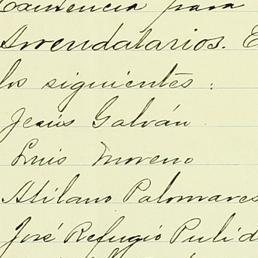 Existencia para
Arrendatarios. E
los siguientes:
Jesús Galván
Luis Moreno
Atilano Palomares
José Refugio Pulid